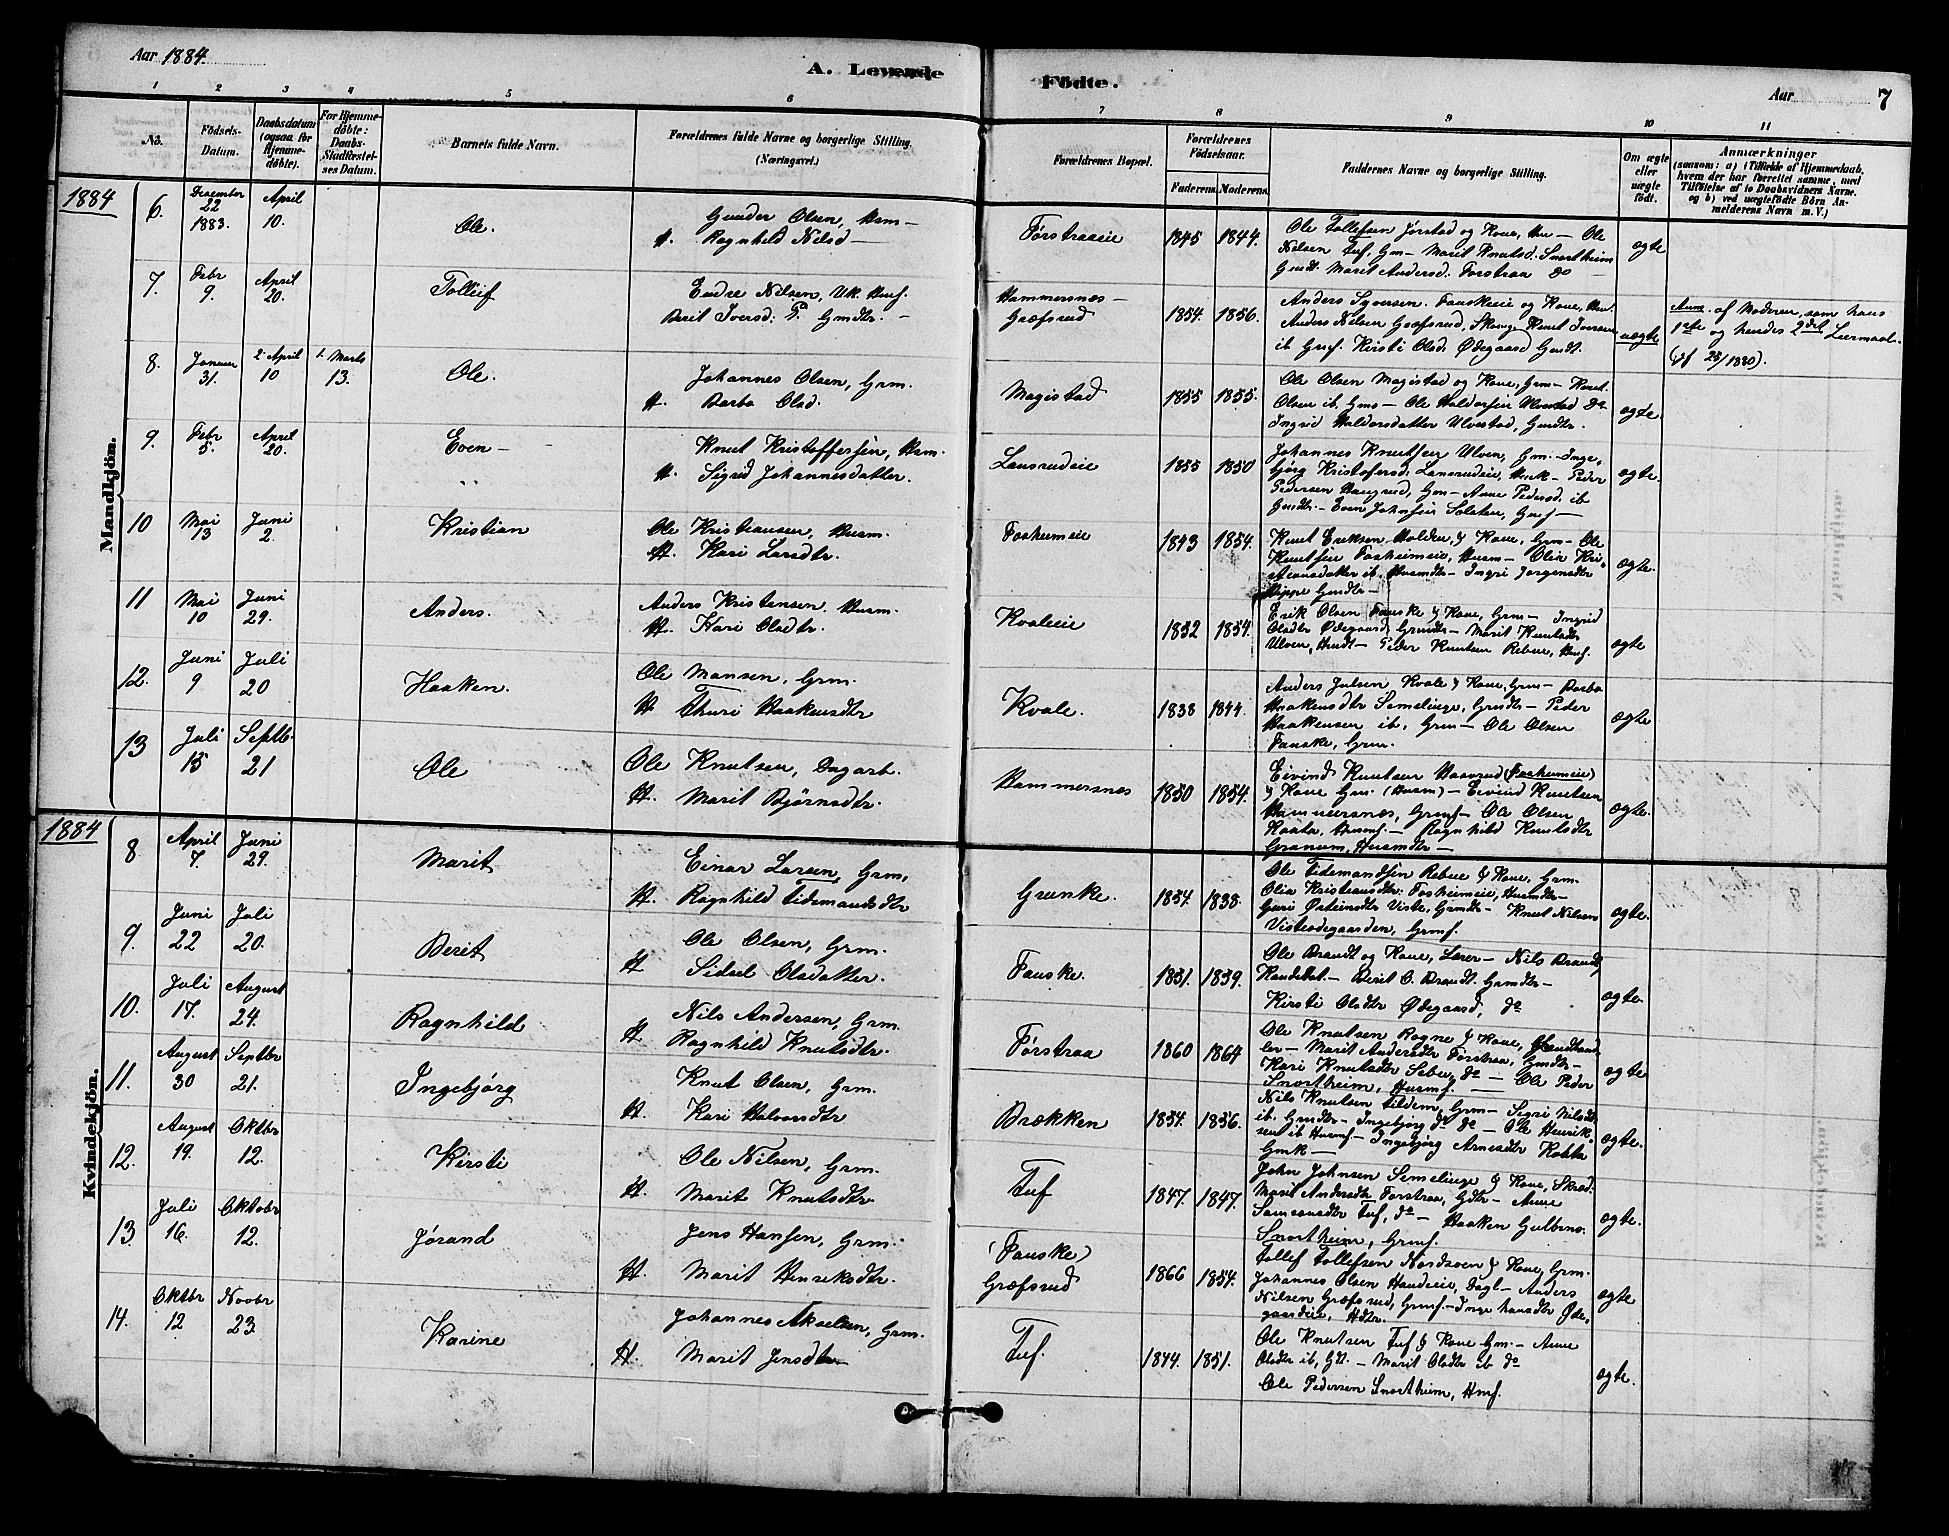 Aar 1884.
A. Levende Födte.
Aar 7
1 2 3 4 5 6 7 8 9 10 11
No.
Födsels-Datum.
Daabsdatum (ogsaa for Hjemmedöbte).
For Hjemmedöbte: Daabs-Stadfæstelses Datum.
Barnets fulde Navn.
Forældrenes fulde Navne og borgerlige Stilling. (Næringsvei.)
Forældrenes Bopæl.
Forældrenes Födselsaar.
Faderens. Moderens.
Faddernes Navne og borgerlige Stilling.
Om ægte eller uægte födt.
Anmærkninger
(saasom: a) i Tilfælde af Hjemmedaab, hvem der har forrettet samme, med Tilföielse af to Daabsvidners Navne. og b) ved uægtefödte Börn Anmelderens Navn m. V.)
1884
Mandkjön.
6. December 22 1883. April 10. Ole. Gunder Olsen, Husm —
H. Ragnhild Nilsd —
Førstraaeie 1845 1844.
Ole Tollefsen Jørstad og Kone, Hm — Ole
Nilsen Tuf, Gm — Marit Knutsd. Snortheim
Gmdt. Marit Andersd. Forstraa do —
ægte
7. Febr 9. April 20. Tolleif Endre Nilsen, Uk.
Berit Iversd: P. Gmdtr. —
Hammersnæs —
Græfsrud 1854. 1856.
Anders Syversen Fauskeie og Kone,
Anders Nilsen Græfsrud, Knut Iversen
ib Gmf. Kirsti Olsd. Ødegaard Gmdt.
uægte
Anm. af Moderen, som hans
1ste og hendes 2det Leiermaal.
8. Januar 31. 2. April 10 1. Marts 13. Ole. Johannes Olsen, Grm.
H. Barbo Olsd.
Magistad 1855 1855.
Ole Olsen Magistad og Kone, Grm — Knut
Olsen ib. Gms — Ole Haldorsen Ulvestad do
Ingrid Haldorsdatter Ulvestad, Gmdtr.
ægte.
9. Febr 5. April 20. Even — Knut Kristoffersen, Husm.
H. Sigrid Johannesdatter.
Lansrudeie 1855 1850
Johannes Knutsen Ulven, Gm. — Inge-
bjørg Kristofersd: Lansrudeie, — Peder
Pedersen Haugrud, Gm — Anne Pedersd. ib
Gmdtr. — Even Johnsen Gmf —
ægte.
10 Mai 13 Juni 2. Kristian Ole Kristiansen, Husm.
H. Kari Larsdtr.
Fosheimeie 1843 1854.
Knut Eriksen Holden, & Kone, Grm — Ole
Knutsen Fosheimeie, Husm — Olia Kri-
stiansdatter ib. Husmdtr — Ingri Jorgensdtr
Rippe Gmdtr —
ægte.
11 Mai 10 Juni 29. Anders. Anders Kristensen Husm.
H. Kari Olsdtr.
Kvaleie 1852 1854.
Erik Olsen Fauske & Kone, Grm — Ingrid
Olsdtr Ødegaard, Grmdtr — Marit Knutsdtr
Ulven, — Peder Knutsen Rebne,
ægte
12. Juni 9 Juli 20 Haaken. Ole Monsen, Grm.
H Thuri Haakensdtr
Kvale. 1838 1844.
Anders Julsen Kvale & Kone, Grm — Barbo
Haakensdtr Semelinge, Grmdtr — Peder
Haakensen ib, Grm — Ole Olsen
Fauske, Grm.
ægte
13 Juli 15 Septb. 21 Ole Ole Knutsen, Dagarb.
H. Marit Bjørnsdtr.
Hammersnæs 1850 1854.
Eivind Knutsen (Fosheimeie)
& Kone Gm (Husm) — Eivind Knutsen
Hammersnæs, Grmf — Ole Olsen
Husmf. — Ragnhild Knutsdtr
Granum, Husmdtr —
ægte.
1884
Kvindekjön.
8. April 7 Juni 29. Marit Einar Larsen, Grm.
H. Ragnhild Tidemandsdtr
Grunke. 1834. 1838.
Ole Tidemandsen Rebne & Kone, Grm.
Olia Kristiansdtr. Fosheimeie, Husmdtr —
Guri Østeinsdtr Viste, Grmdtr — Knut Nilsen
Visteødegaarden, Grmf.
ægte.
9. Juni 22 Juli 20. Berit Ole Olsen, Grm.
H Sidsel Olsdatter.
Fauske. 1831. 1839.
Ole Brandt og Kone, Lærer — Nils Brandt,
Kandidat. — Berit O. Brandt. Grmdtr —
Kirsti Olsdtr Ødegaard, do
ægte.
10. Juli 17. August 24. Ragnhild Nils Andersen, Grm.
H. Ragnhild Knutsdtr.
Førstraa 1860 1864
Ole Knutsen Rogne & Kone, Handland-
ler — Marit Andersdtr Førstraa, Gmdtr —
Kari Knutsdtr Sebu, do — Ole Peder
Snortheim, Husmf.
ægte
11. August 30 Septbr 21. Ingebjørg Knut Olsen, Grm.
H Kari Halvorsdtr
Brækken 1834. 1836.
Nils Knutsen Grm — Sigri Nilsdtr
ib. Grmdtr — Ingebjørg do do — Ole Henrik-
sen ib Husmf — Ingebjørg Arnesdtr
Gmk —
ægte.
12. August 19. Oktbr 12. Kirsti Ole Nilsen, Grm.
H. Marit Knutsdtr
Tuf 1847. 1847.
John Johnsen Semelinge & Kone, Skræd.
Marit Andersdtr Førstraa, Gdtr — Anne
Tuf, do — Haaken Gulbrns.
Snortheim, Grmf.
ægte.
13. Juli 16. Oktobr 12. Jørand Jens Hansen, Grm.
H. Marit Henriksdtr.
(Fauske)
Græfsrud 1866 1854.
Tollef Tollefsen Nordsveen & Kone, Grm.
Johannes Olsen Dagl — Anders
Nilsen Græfsrud, Grmf — Inge Hansdtr Øde-
gaardeie, Hdtr.
ægte
14. Oktbr 12 Novbr 23. Karine Johannes Akselsen, Grm.
H. Marit Jensdtr
Tuf. 1844. 1851.
Ole Knutsen Tuf & Kone Gm. — Anne
Olsdtr ib, Gdt. — Marit Olsdtr ib do
Ole Pedersen Snortheim, Hmf.
ægte.